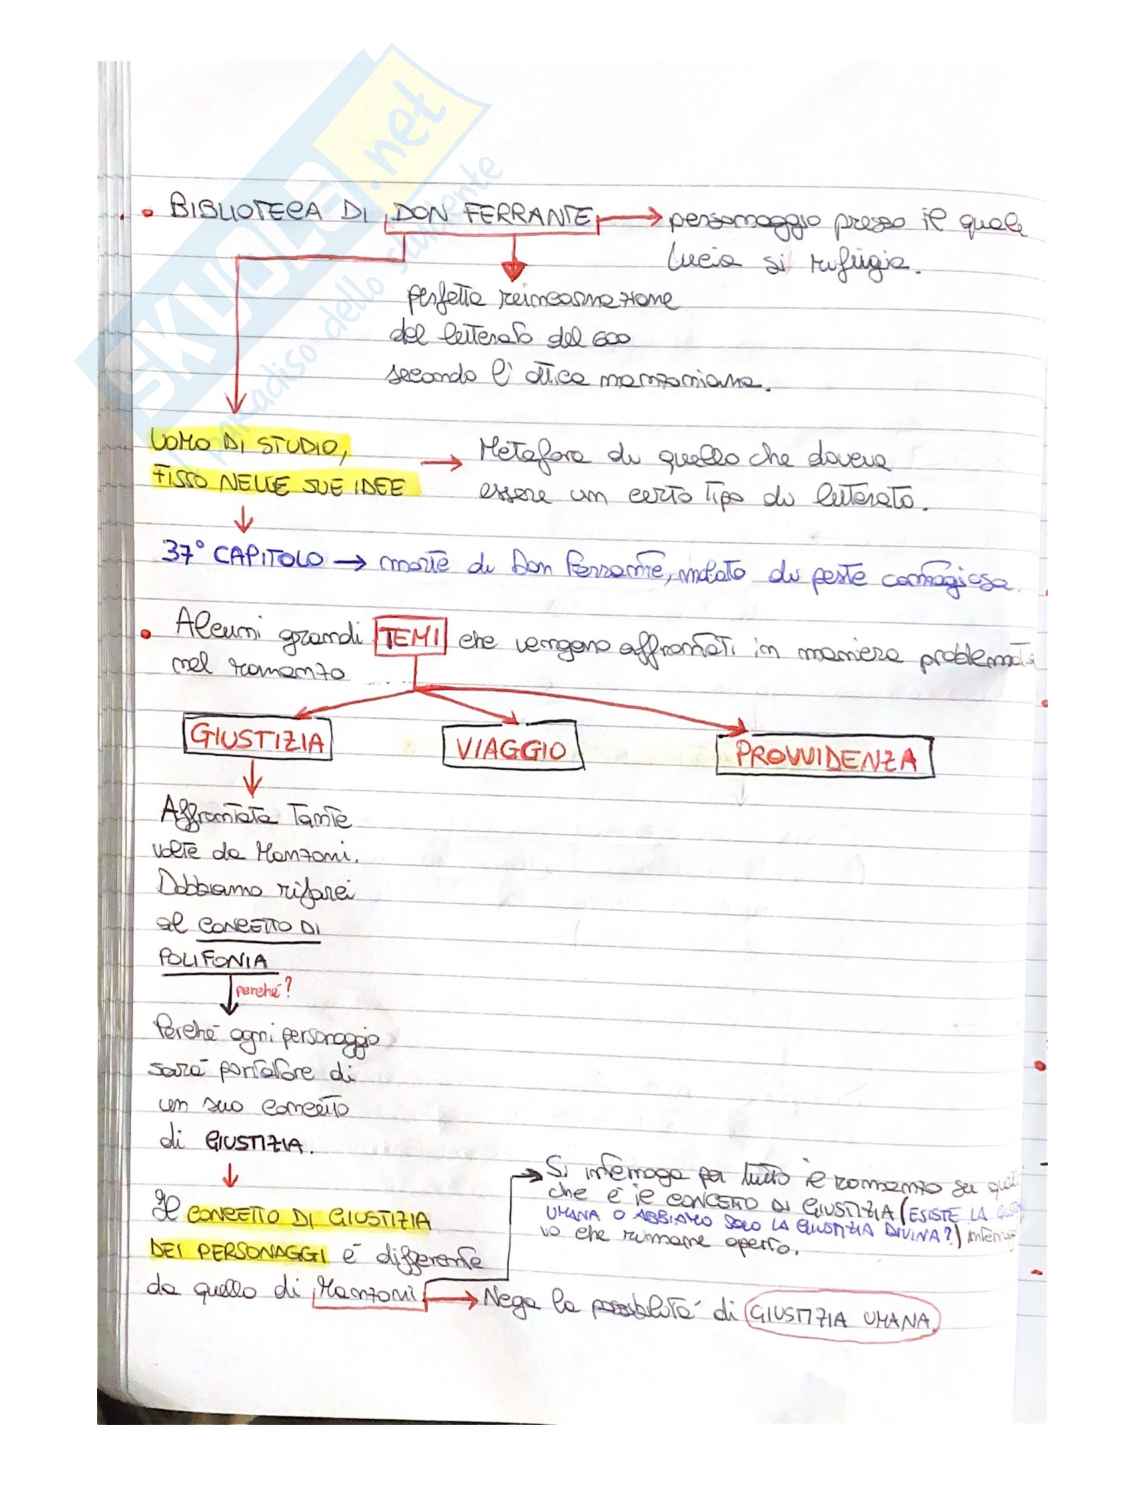 SKUOLA.net
il paradiso dello studente
• BIBLIOTECA DI DON FERRANTE → personaggio presso il quale
Lucia si rifugia.
perfetta reincarnazione
del letterato del 600
secondo l'ottica manzoniana.
UOMO DI STUDIO,
FISSO NELLE SUE IDEE
→ Metafora di quello che doveva
essere un certo tipo di letterato.
37° CAPITOLO → morte di Don Ferrante, malato di peste contagiosa.
• Alcuni grandi TEMI che vengono affrontati in maniera problemati
nel romanzo
GIUSTIZIA VIAGGIO PROVVIDENZA
Affrontata tante
volte da Manzoni.
Dobbiamo rifarci
al CONCETTO DI
POLIFONIA
perché?
Perché ogni personaggio
sarà portatore di
un suo concetto
di GIUSTIZIA.
→ Si interroga per tutto il romanzo su
che è il CONCETTO DI GIUSTIZIA (ESISTE LA
UMANA O ABBIAMO SOLO LA GIUSTIZIA DIVINA?)
vo che rimane aperto.
Il CONCETTO DI GIUSTIZIA
DEI PERSONAGGI è differente
da quello di Manzoni → Nega la possibilità di GIUSTIZIA UMANA